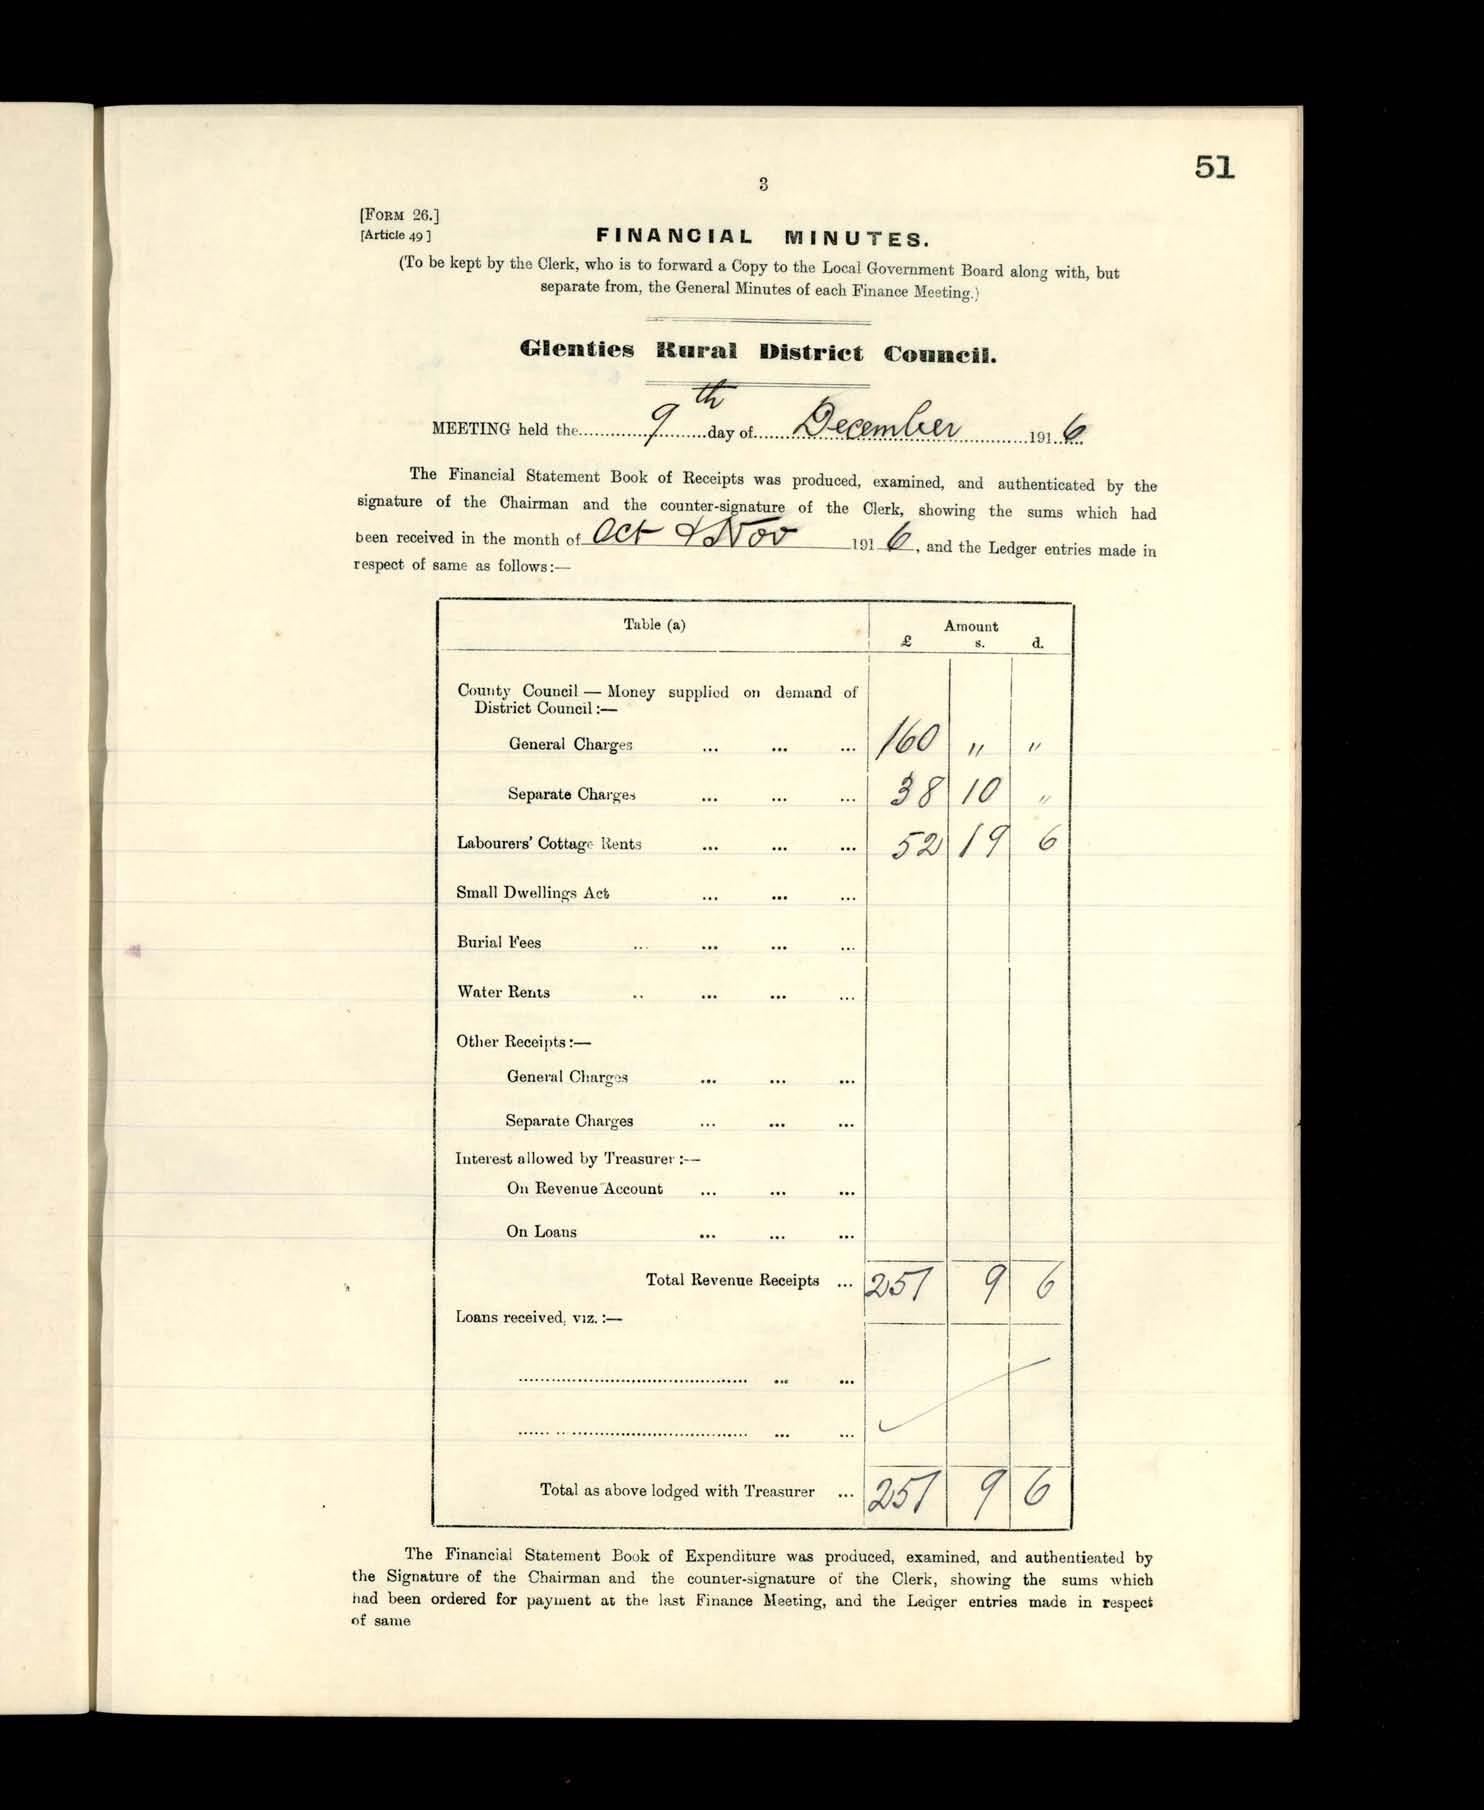 51
3
[FORM 26.]
[Article 49]
FINANCIAL MINUTES.
(To be kept by the Clerk, who is to forward a Copy to the Local Government Board along with, but
separate from, the General Minutes of each Finance Meeting.)
Glenties Rural District Council.
MEETING held the 9th day of December 1916
The Financial Statement Book of Receipts was produced, examined, and authenticated by the
signature of the Chairman and the counter-signature of the Clerk, showing the sums which had
been received in the month of Oct & Nov 1916, and the Ledger entries made in
respect of same as follows:—
Table (a) Amount
£ s. d.
County Council — Money supplied on demand of
District Council:—
General Charges ... ... ... 160 " "
Separate Charges ... ... ... 38 10 "
Labourers' Cottage Rents ... ... ... 52 19 6
Small Dwellings Act ... ... ...
Burial Fees ... ... ... ...
Water Rents .. ... ... ...
Other Receipts:—
General Charges ... ... ...
Separate Charges ... ... ...
Interest allowed by Treasurer:—
On Revenue Account ... ... ...
On Loans ... ... ...
Total Revenue Receipts ... 251 9 6
Loans received, viz.:—
Total as above lodged with Treasurer ... 251 9 6
The Financial Statement Book of Expenditure was produced, examined, and authenticated by
the Signature of the Chairman and the counter-signature of the Clerk, showing the sums which
had been ordered for payment at the last Finance Meeting, and the Ledger entries made in respect
of same